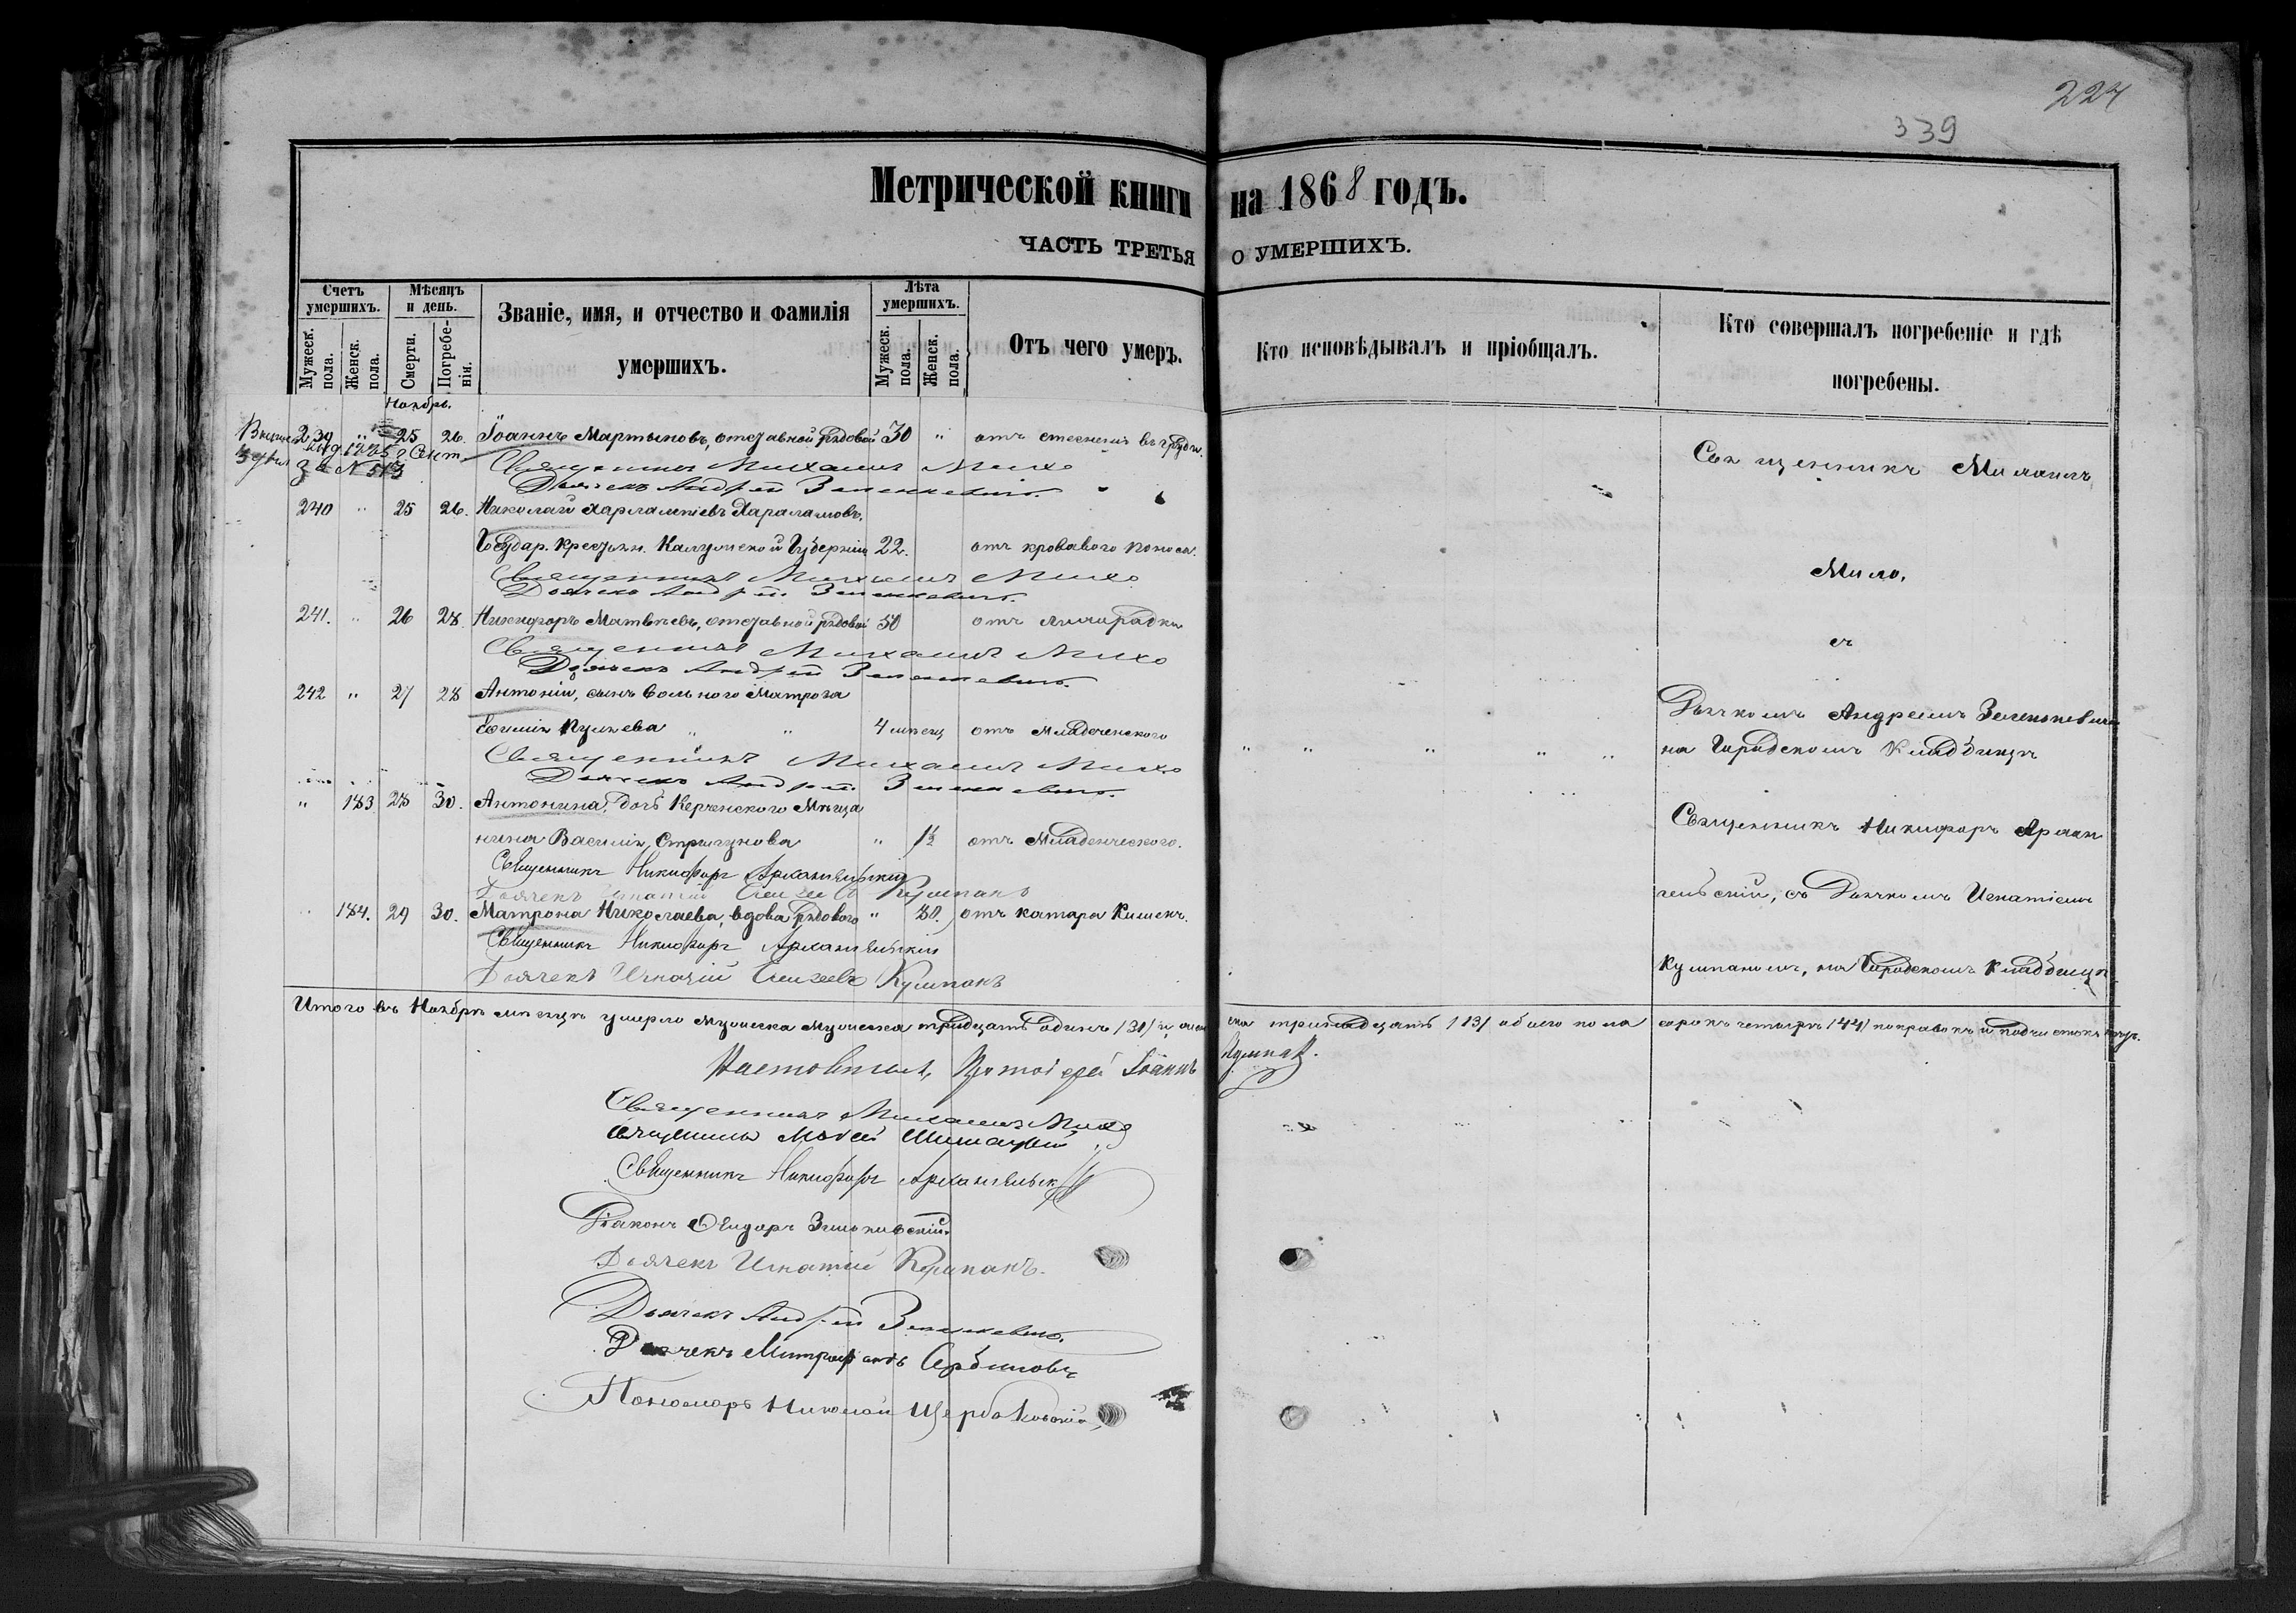 224
339
Метрической книги на 1868 годъ.
ЧАСТЬ ТРЕТЬЯ О УМЕРШИХЪ.
Счетъ умершихъ.
Мужеск. пола.
Женск. пола.
Мѣсяцъ и день.
Смерти.
Погребенія.
Званіе, имя, и отчество и фамилія умершихъ.
Лѣта умершихъ.
Мужеск. пола.
Женск. пола.
Отъ чего умеръ.
Кто исповѣдывалъ и пріобщалъ.
Кто совершалъ погребеніе и гдѣ погребены.
Ноябрь.
239 " 25 26. Іоаннъ Мартыновъ, отставной рядовой 30 " отъ стесненія въ груди.
за № 513
Священникъ Михаилъ Михо
Дьячекъ Андрей Зеленкевичъ.
240 " 25 26. Николай Харлампіевъ Харламовъ,
Государ. крестьян. Калужской Губерніи 22. отъ кроваваго поноса.
Священникъ Михаилъ Михо
Дьячекъ Андрей Зеленкевичъ.
241. " 26 28. Никифоръ Матвѣевъ, отставной рядовой 50 отъ лихорадки
Священникъ Михаилъ Михо
Дьячекъ Андрей Зеленкевичъ.
242 " 27 28 Антоній, сынъ вольнаго матроза
Евфимія " " 4 месец отъ младенческого
Священникъ Михаилъ Михо
Дьячекъ Андрей Зеленкевичъ.
" 183 28 30. Антонина, дочь Керченского Мѣща
нина Василія Стригунова " 1½ отъ Младенческого.
Священникъ Никифоръ Архангельскій
Дьячекъ Игнатій Елисеевъ Кулпакъ
" 184. 29 30. Матрона Николаева, вдова рядового " 30. отъ катара кишекъ.
Священникъ Никифоръ Архангельскій
Дьячекъ Игнатій Елисеевъ Кулпакъ
Священникъ Михаилъ
Михо,
съ
Дьячкомъ Андреемъ Зеленкевичъ
на Городскомъ кладбищѣ
Священникъ Никифоръ Архан
гельскій, съ Дьячкомъ Игнатіемъ
Кулпакомъ, на Городскомъ кладбищѣ
Итого въ Ноябрѣ месяцѣ умерло мужеска тридцать одинъ /31/ и женска тринадцать /13/ обоего пола сорокъ четыре /44/ поправокъ и подчистокъ
Настоятель, Протоіерей Іоаннъ
Священникъ Михаилъ Михо
Священникъ Моѵсей
Священникъ Никифоръ Архангельскій
Діаконъ Ѳеодоръ
Дьячекъ Игнатій Кулпакъ.
Дьячекъ Андрей Зеленкевичъ.
Дьячекъ Митрофанъ Сербиновъ
Пономарь Николай Щербаковскій